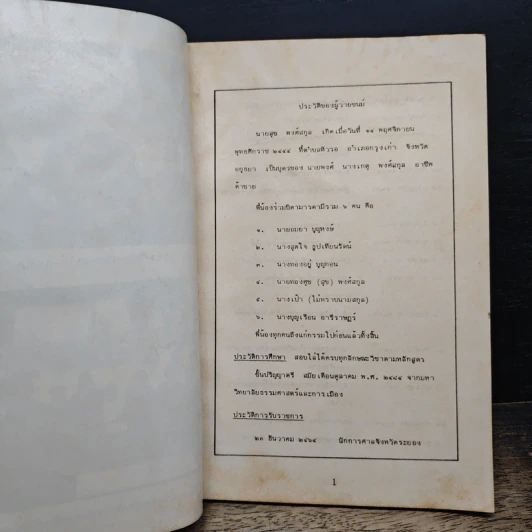 ประวัติของผู้วายชนม์
นายสุข พงศ์สกุล เกิดเมื่อวันที่ ๑๔ พฤศจิกายน
พุทธศักราช ๒๔๔๔ ที่ตำบลหัวรอ อำเภอกรุงเก่า จังหวัด
อยุธยา เป็นบุตรของ นายพงศ์ นางเกตุ พงศ์สกุล อาชีพ
ค้าขาย
พี่น้องร่วมบิดามารดามีรวม ๖ คน คือ
๑. บุญพงษ์
๒. นางสุดใจ รูปเทียนรัตน์
๓. นางทองอยู่ บุญถอน
๔. นายทองศุข (สุข) พงศ์สกุล
๕. นางเป้า (ไม่ทราบนามสกุล)
๖. นางบุญเรือน อารีราษฎร์
พี่น้องทุกคนถึงแก่กรรมไปก่อนแล้วทั้งสิ้น
ประวัติการศึกษา สอบไล่ได้ครบทุกลักษณะวิชาตามหลักสูตร
ชั้นปริญญาตรี สมัยเดือนตุลาคม พ.ศ. ๒๔๘๔ จากมหา
วิทยาลัยธรรมศาสตร์และการเมือง
ประวัติการรับราชการ
๒๓ ธันวาคม ๒๔๖๔ นักการศาลจังหวัดระยอง
1